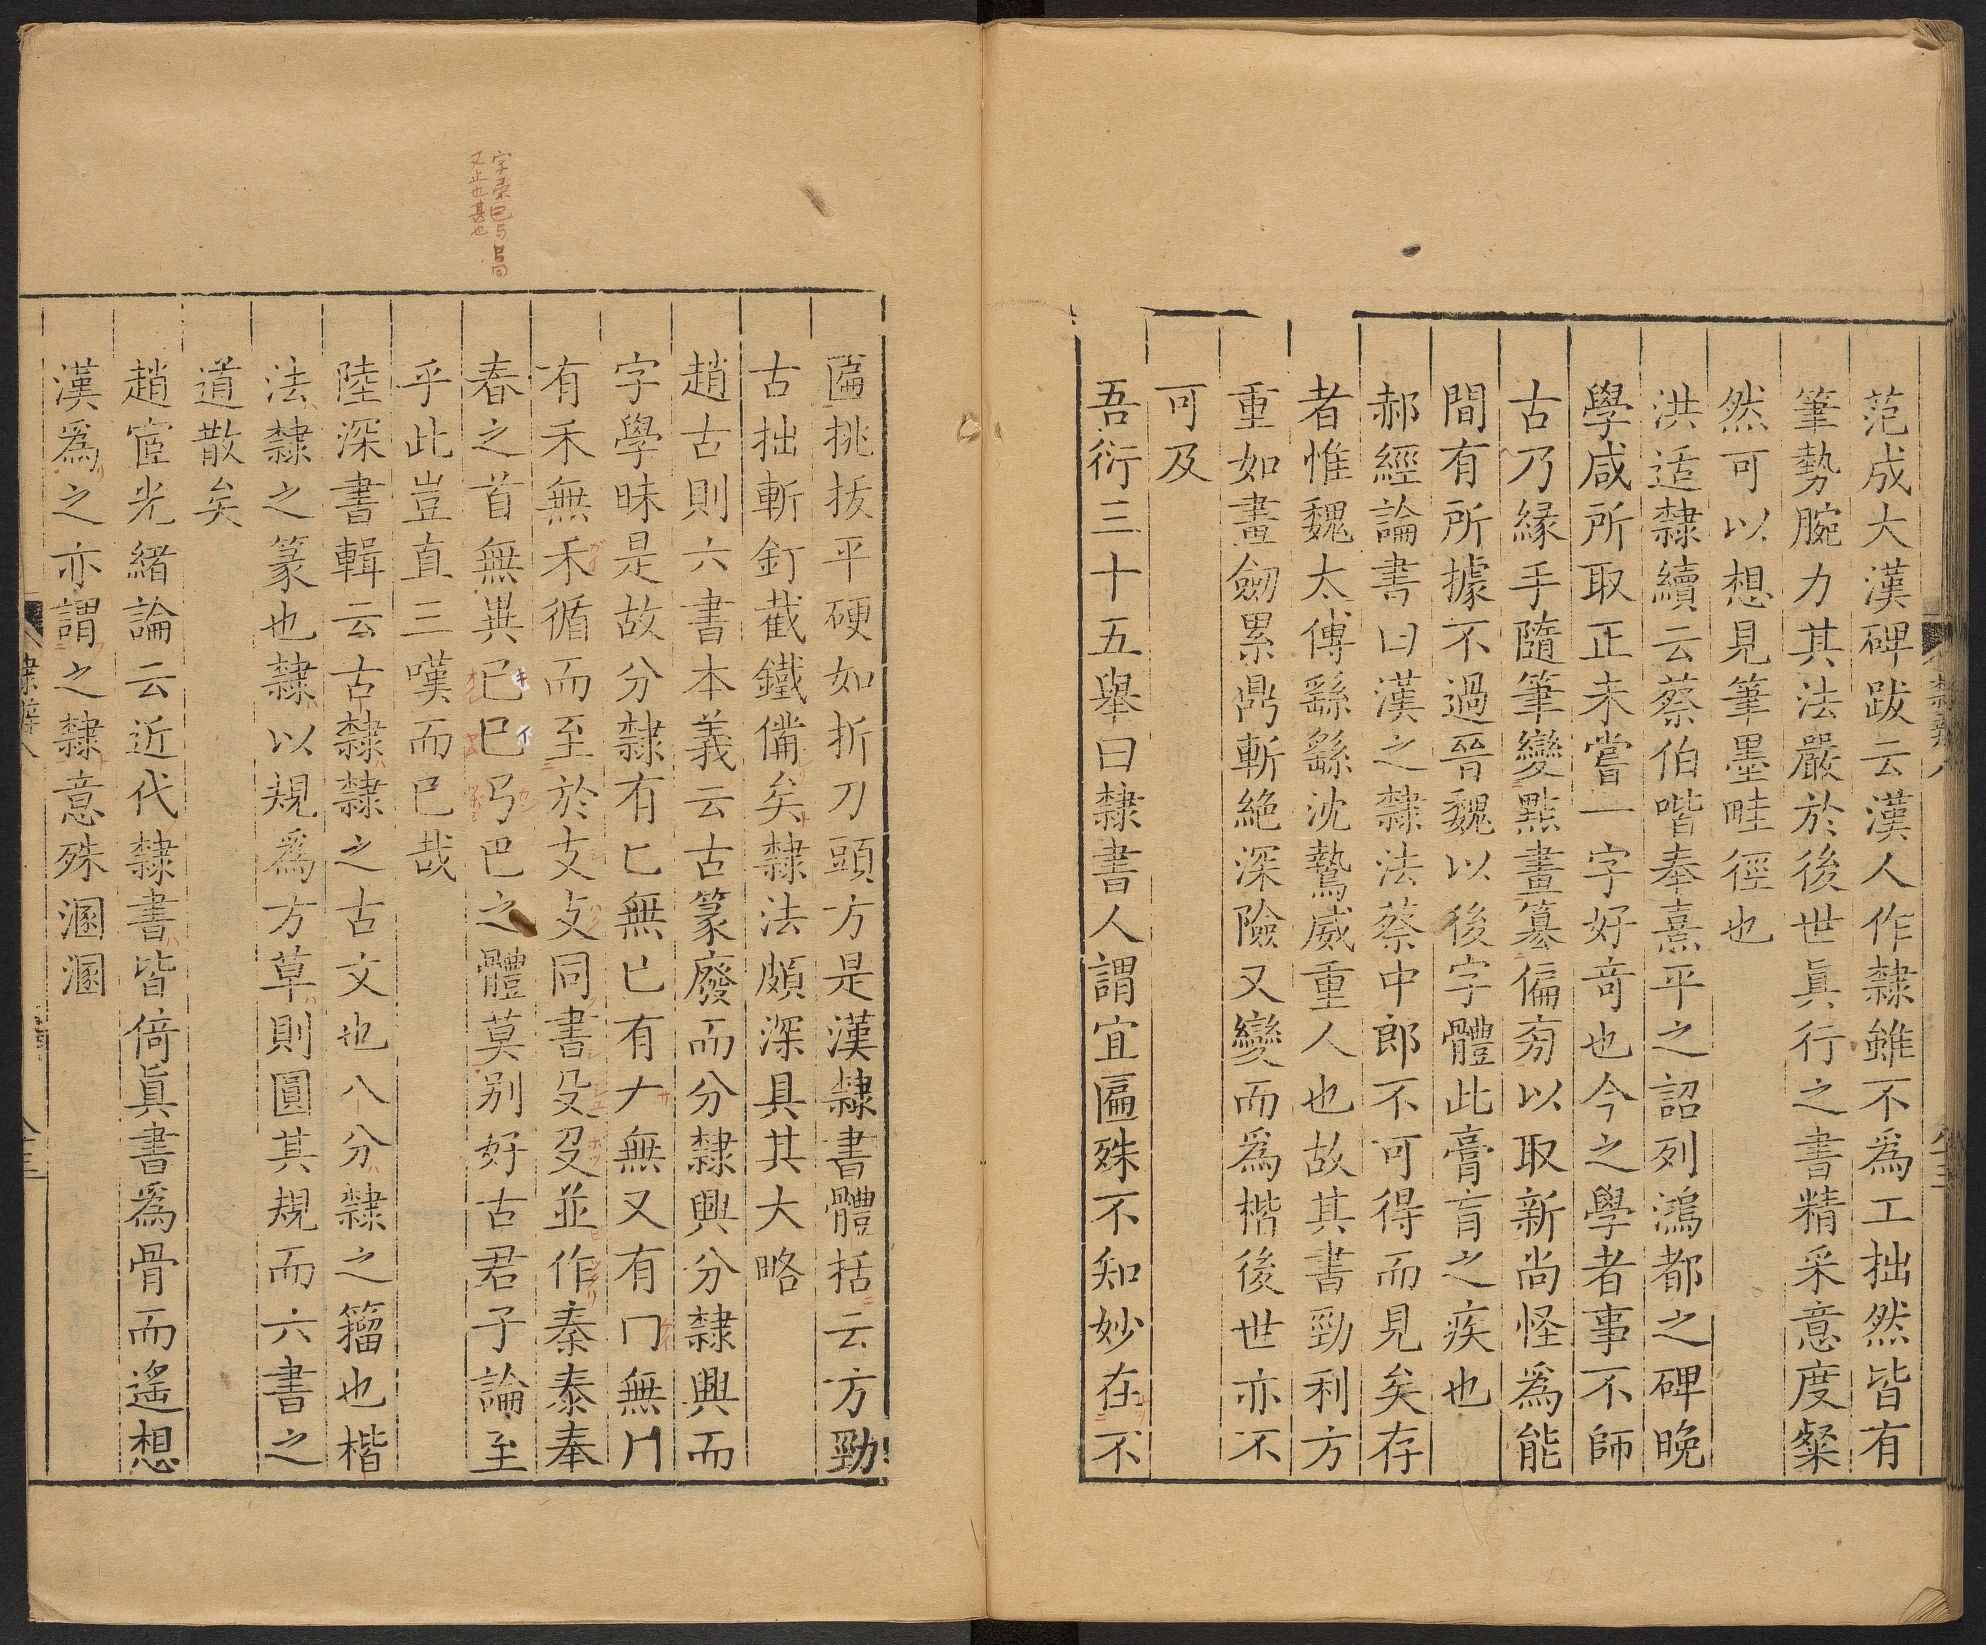 范成大漢碑跋云漢人作隸雖不爲工拙然皆有
筆勢腕力其法嚴於後世眞行之書精采意度粲
然可以想見筆墨畦徑也
洪适隸續云蔡伯喈奉熹平之詔列鴻都之碑晚
學咸所取正未嘗一字好竒也今之學者事不師
古乃緣手隨筆變點畫簒偏旁以取新尚怪爲能
間有所據不過晉魏以後字體此膏肓之疾也
郝經論書曰漢之隸法蔡中郎不可得而見矣存
者惟魏太傅繇繇沈鷙威重人也故其書勁利方
重如畫劒累鼎斬絶深險又變而爲楷後世亦不
可及
吾衍三十五舉曰隸書人謂宜匾殊不知妙在不
匾挑拔平硬如折刀頭方是漢隸書體括云方勁
古拙斬釘截鐵備矣隸法頗深具其大略
趙古則六書本義云古篆廢而分隸興分隸興而
字學昧是故分隸有匕無㠯有𠂇無又有冂無冂
有禾無禾循而至於支攴同書殳殳並作秦泰奉
春之首無異已巳㔾巴之體莫别好古君子論至
乎此豈直三嘆而已哉
陸深書輯云古隸隸之古文也八分隸之籀也楷
法隸之篆也隸以規爲方草則圓其規而六書之
道散矣
趙宧光緒論云近代隸書皆倚眞書爲骨而遙想
漢爲之亦謂之隸意殊溷溷